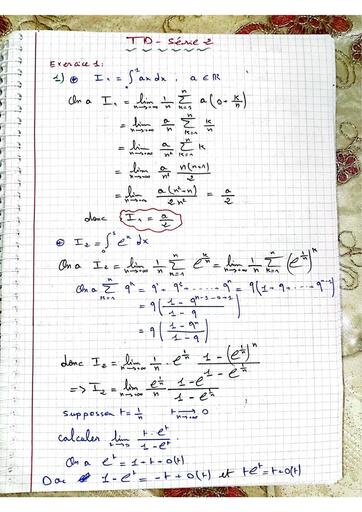 TD - Série 2
Exercice 1:
1) ⊕ I₁ = ∫₀¹ ax dx, a ∈ ℝ
On a I₁ = lim_{n→+∞} 1/n ∑_{k=1}^{n} a (0 + k/n)
= lim_{n→+∞} a/n ∑_{k=1}^{n} k/n
= lim_{n→+∞} a/n² ∑_{k=1}^{n} k
= lim_{n→+∞} a/n² n(n+1)/2
= lim_{n→+∞} a(n²+n)/2n² = a/2
donc I₁ = a/2
⊕ I₂ = ∫₀¹ eˣ dx
On a I₂ = lim_{n→+∞} 1/n ∑_{k=1}^{n} e^{k/n} = lim_{n→+∞} 1/n ∑_{k=1}^{n} (e^{1/n})^k
On a ∑_{k=1}^{n} q^k = q¹ + q² + ..... + qⁿ = q(1 + q + .... + q^{n-1})
= q((1 - q^{n-1-0+1})/(1 - q))
= q((1 - qⁿ)/(1 - q))
donc I₂ = lim_{n→+∞} 1/n · e^{1/n} (1 - (e^{1/n})ⁿ)/(1 - e^{1/n})
=> I₂ = lim_{n→+∞} e^{1/n}/n (1 - e)/(1 - e^{1/n})
supposson t = 1/n t →_{n→+∞} 0
calculer lim_{t→0} t·e^t/(1 - e^t)
On a e^t = 1 + t + o(t)
Donc 1 - e^t = -t + o(t) et te^t = t + o(t)